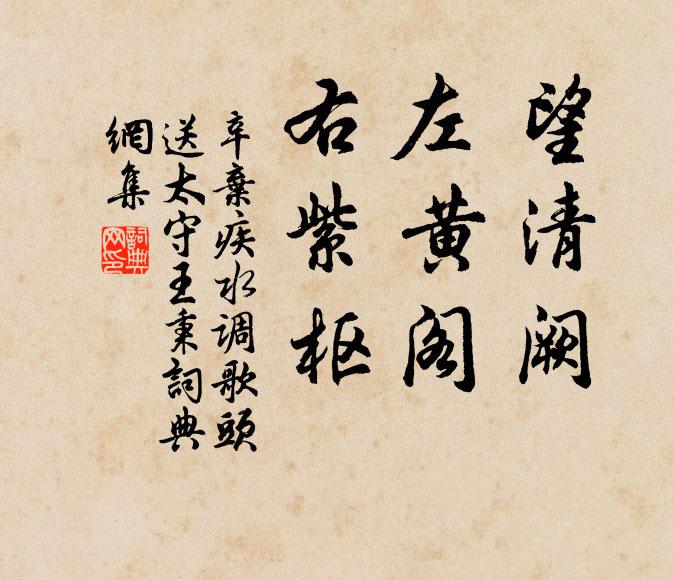 望清阙
左黄阁
右紫枢
辛棄疾水调歌頭
送太守王秉詞典
網集
詞典
网印